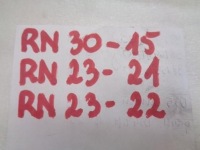 RN 30-15
RN 23- 21
RN 23- 22